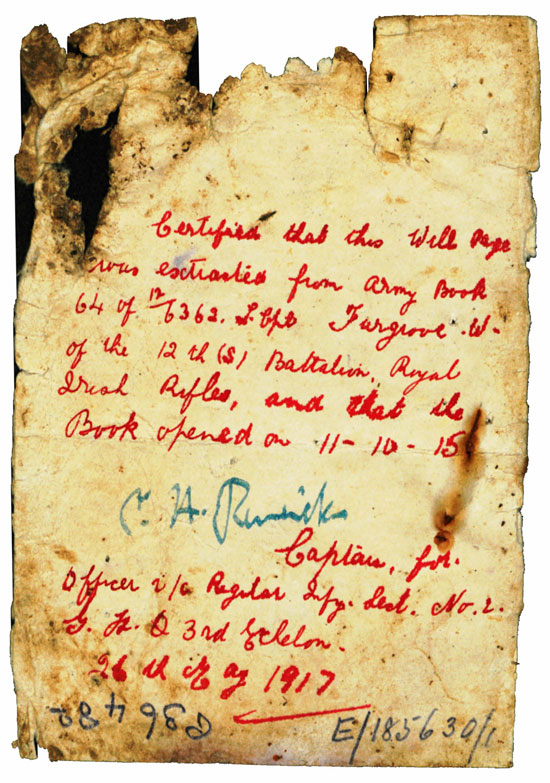 Certified that this Will Page
was extracted from Army Book
64 of 12/6362. L Cpl Furgrove W.
of the 12 th (S) Battalion, Royal
Irish Rifles, and that the
Book opened on 11 - 10 - 15
C. H.
Captain, for.
Officer i/c Regular Infy. Sect. No. 2.
G. H. Q 3rd Echelon.
26 th May 1917
E/185630/1.